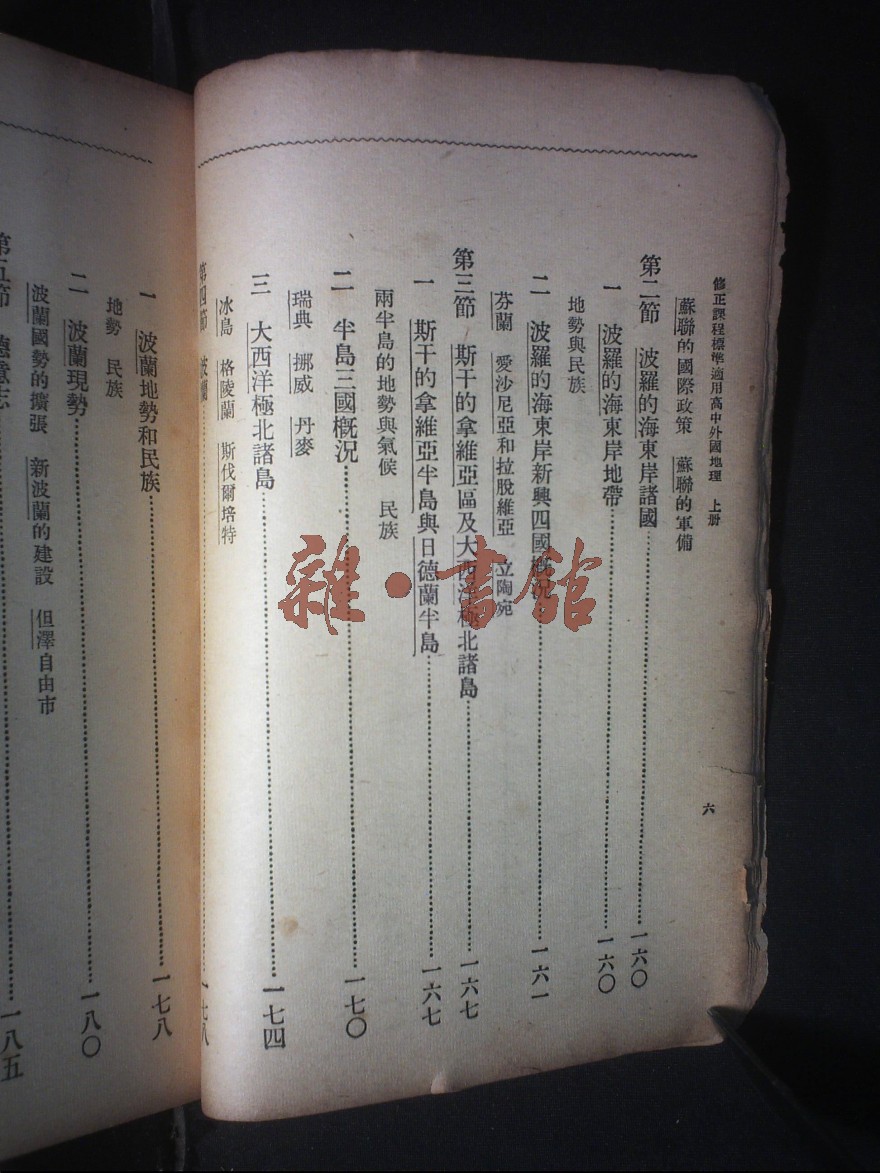 修正課程標準適用高中外國地理　上册
六
蘇聯的國際政策　蘇聯的軍備
第二節　波羅的海東岸諸國……一六〇
一　波羅的海東岸地帶……一六〇
地勢與民族
二　波羅的海東岸新興四國概況……一六一
芬蘭　愛沙尼亞和拉脫維亞　立陶宛
第三節　斯干的拿維亞區及大西洋極北諸島……一六七
一　斯干的拿維亞半島與日德蘭半島……一六七
兩半島的地勢與氣候　民族
二　半島三國概況……一七〇
瑞典　挪威　丹麥
三　大西洋極北諸島……一七四
冰島　格陵蘭　斯伐爾培特
第四節　波蘭……一七八
一　波蘭地勢和民族……一七八
地勢　民族
二　波蘭現勢……一八〇
波蘭國勢的擴張　新波蘭的建設　但澤自由市
第五節　德意志……一八五
雜·書館